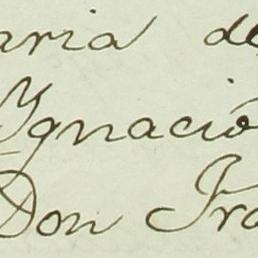 aria de
Ygnació
Don Fra